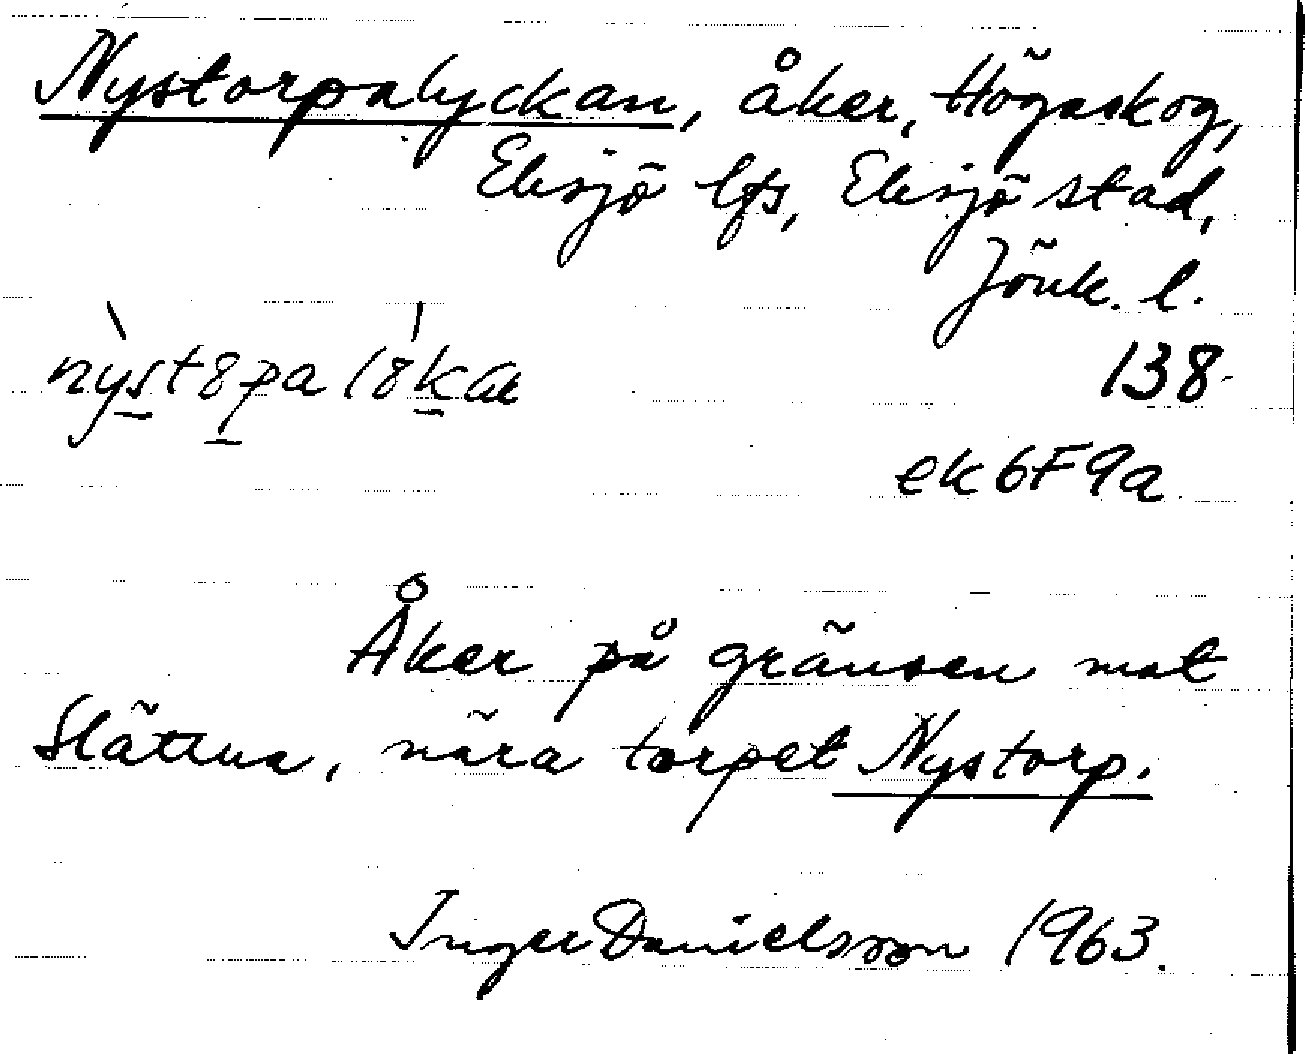 Nystorpalyckan, åker, Högaskog,
Eksjö lfs, Eksjö stad,
Jönk. l.
138
ek6F9a
Åker på gränsen mot
Slättna, nära torpet Nystorp.
Inger Danielsson 1963.